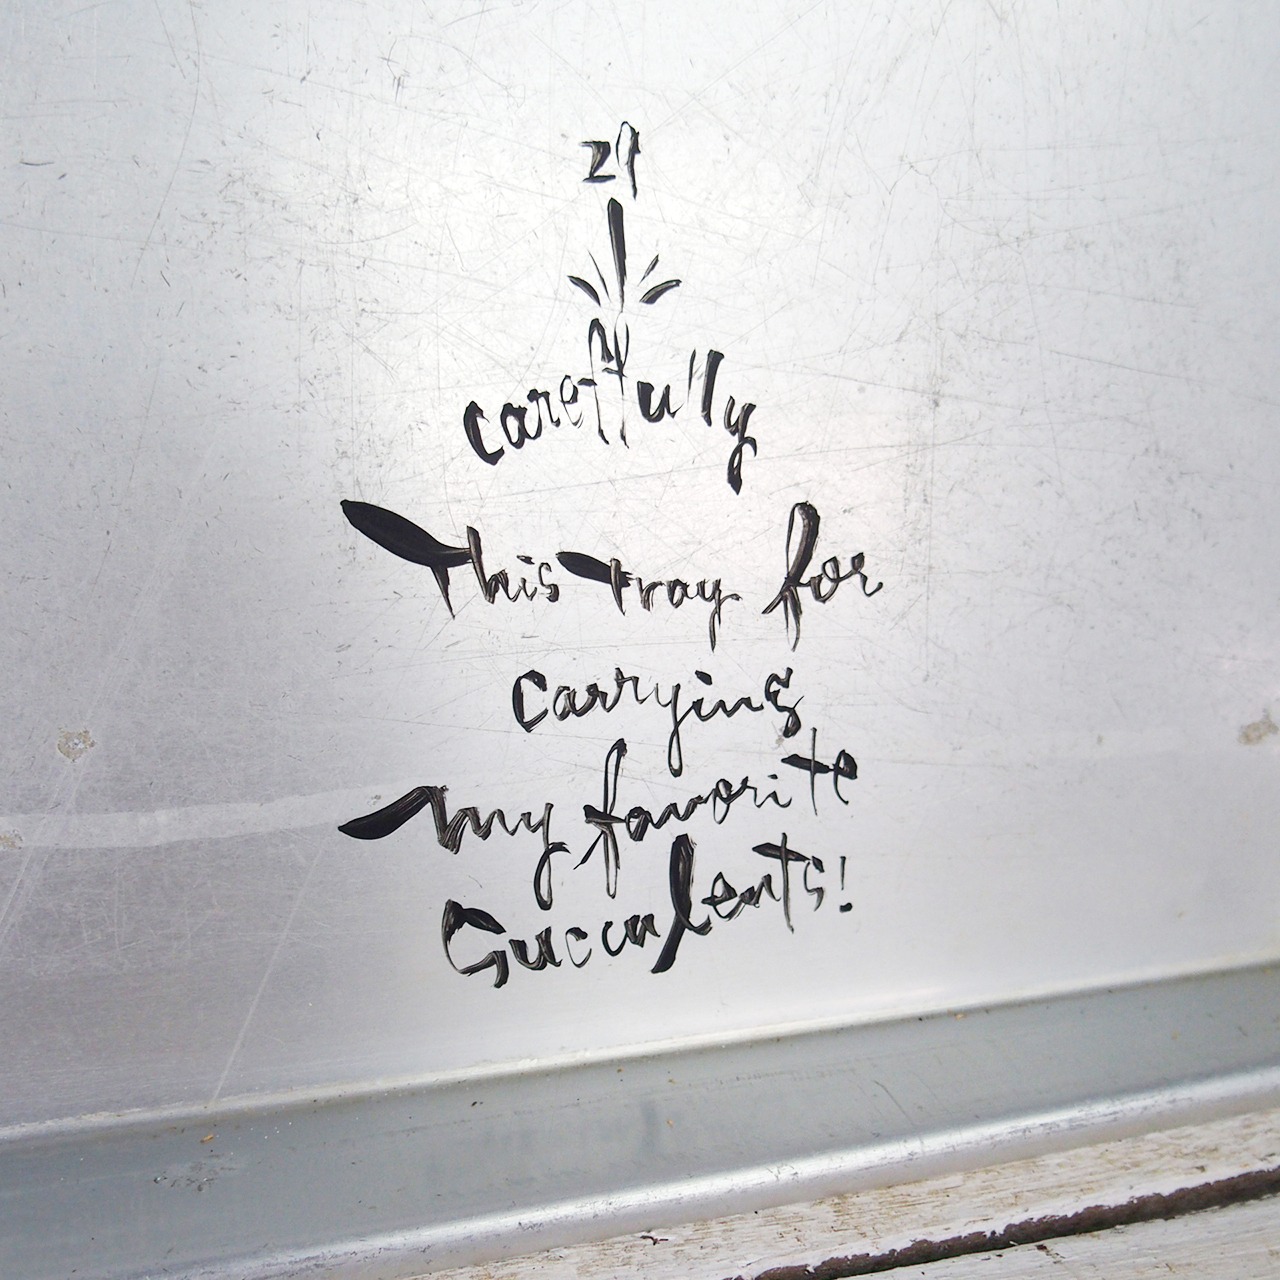 29
carefully
This tray for
carrying
my favorite
Succulents!